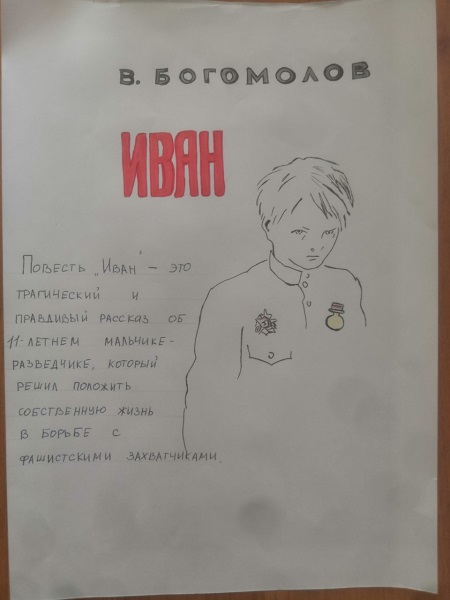 В. БОГОМОЛОВ
ИВАН
ПОВЕСТЬ „ИВАН" – ЭТО
ТРАГИЧЕСКИЙ И
ПРАВДИВЫЙ РАССКАЗ ОБ
11-ЛЕТНЕМ МАЛЬЧИКЕ-
РАЗВЕДЧИКЕ, КОТОРЫЙ
РЕШИЛ ПОЛОЖИТЬ
СОБСТВЕННУЮ ЖИЗНЬ
В БОРЬБЕ С
ФАШИСТСКИМИ ЗАХВАТЧИКАМИ.